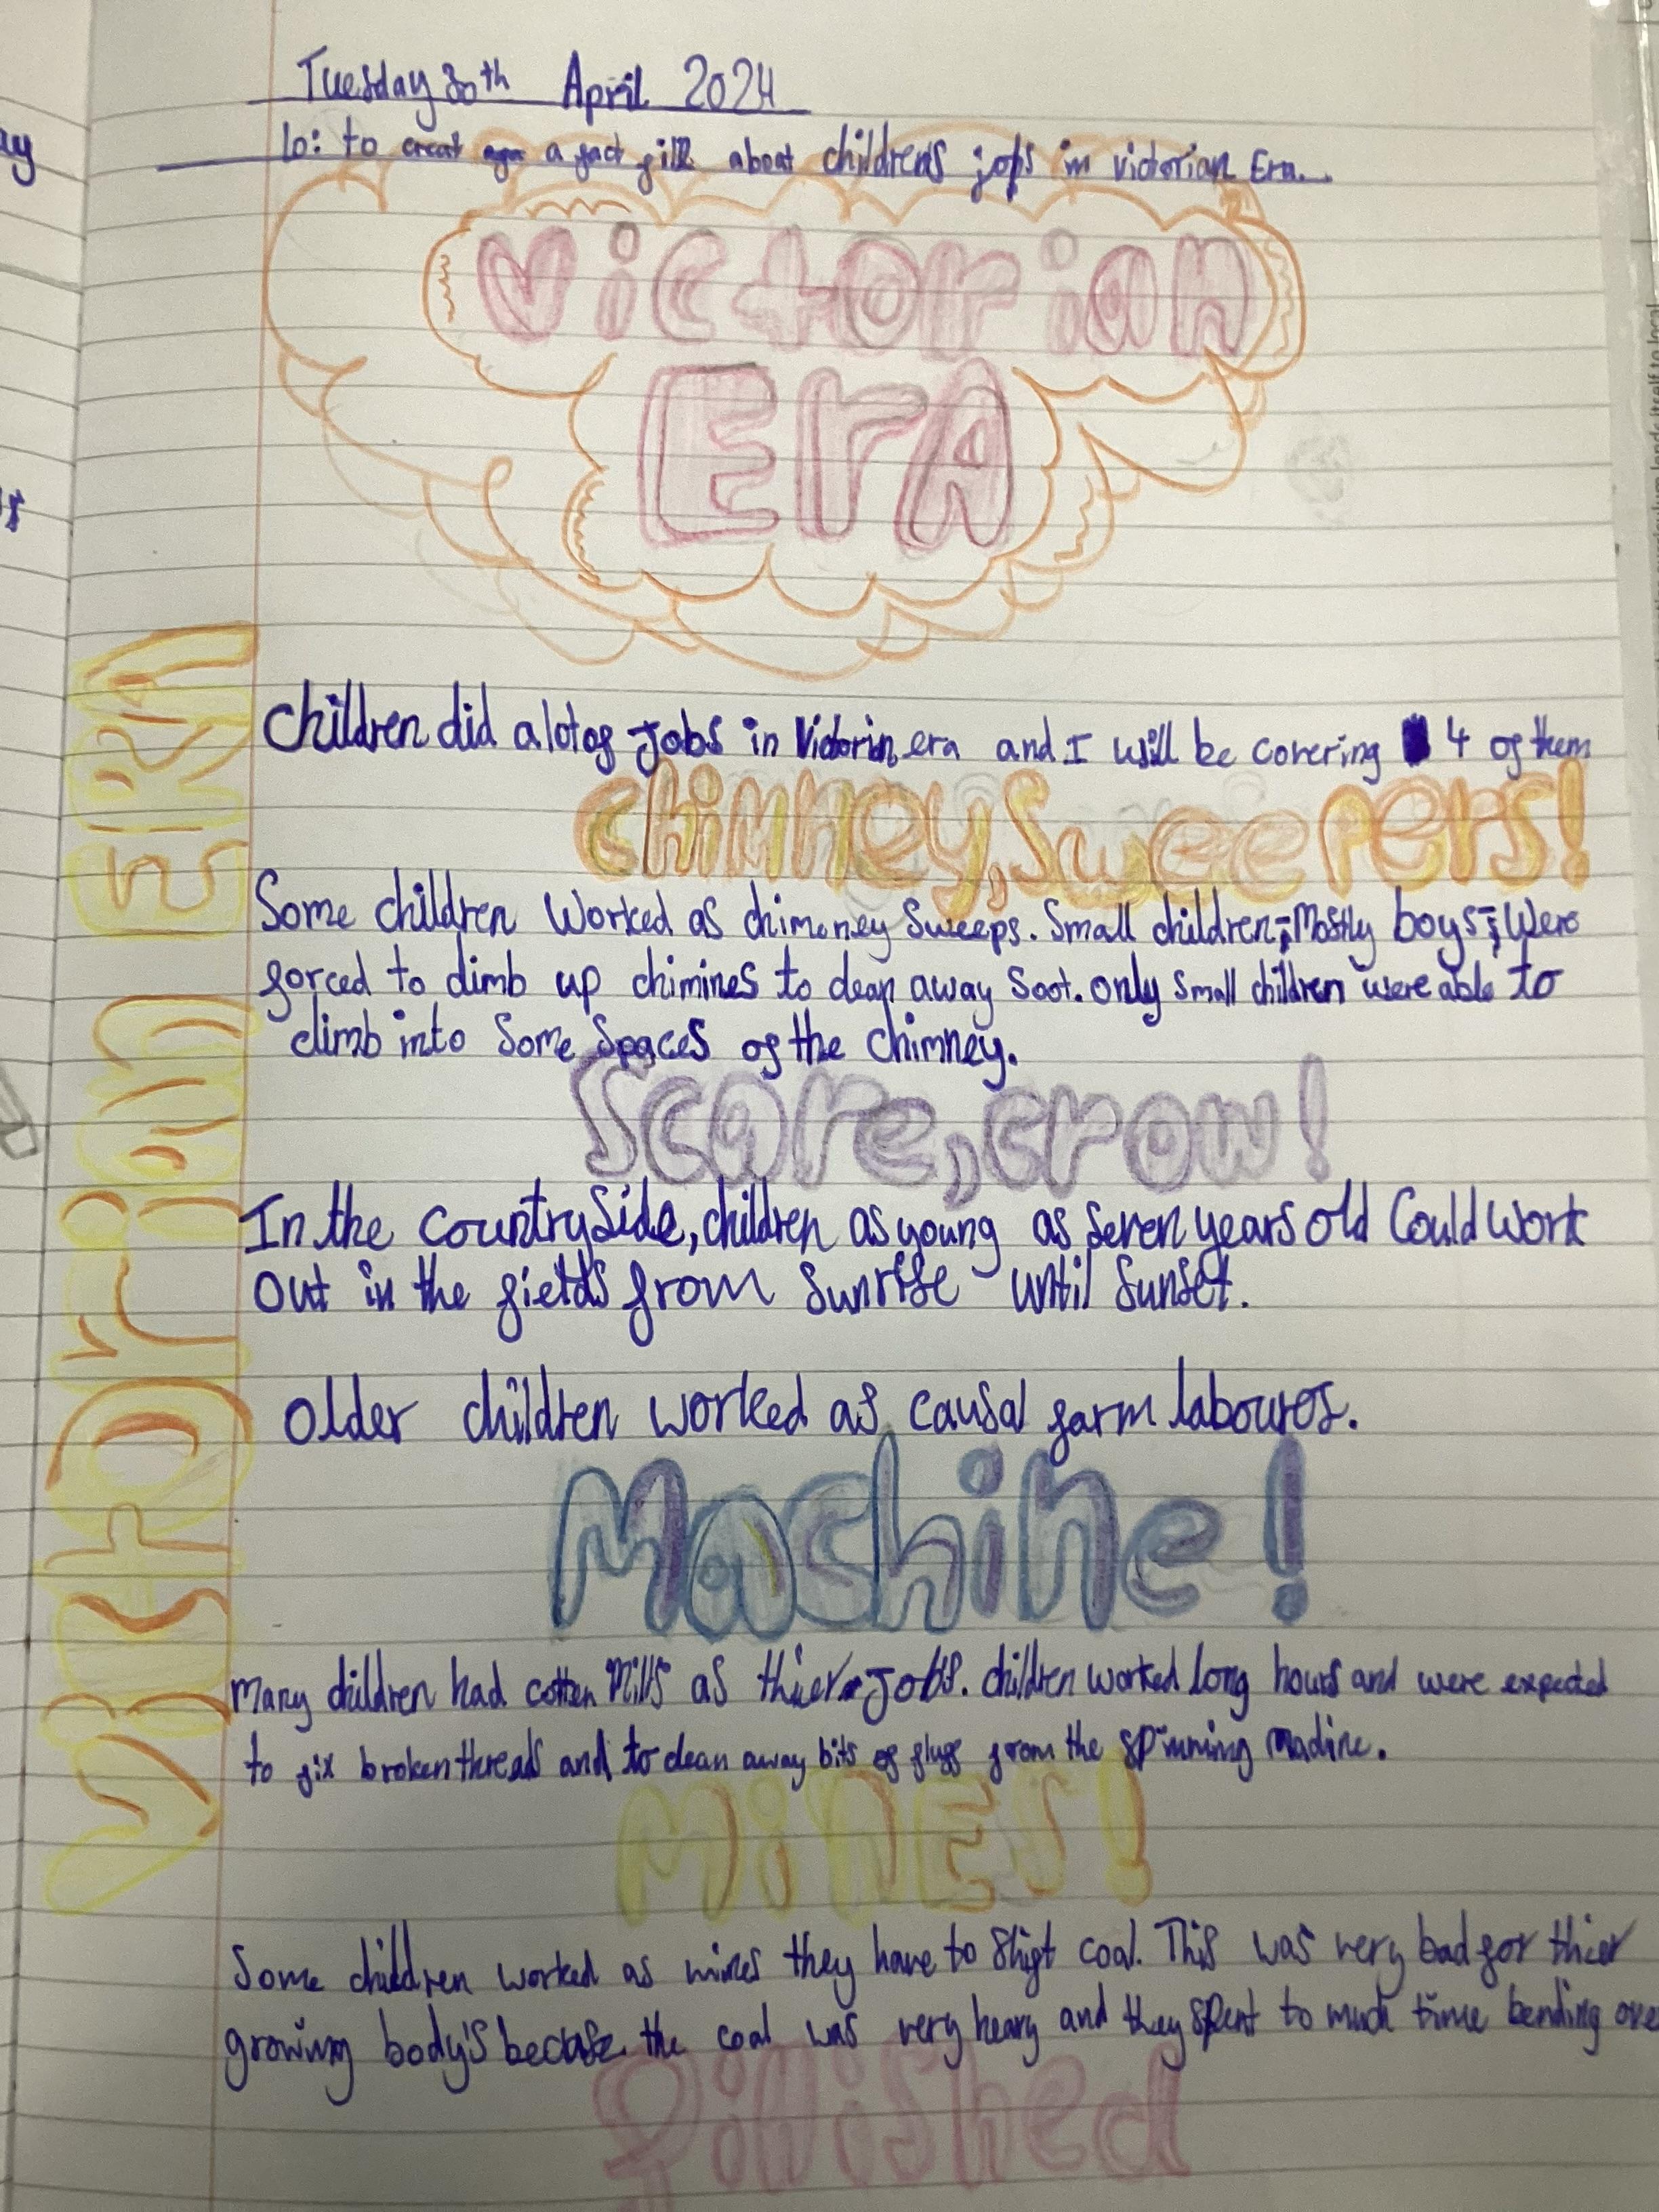 Tuesday 30th April 2024
lo: to creat a fact fill about children's jobs in victorian Era.
Victorian
ErA
Victorian ERA
Children did alotof Jobs in Victorin era and I will be covering 4 of them
chimney,sweepers!
Some children Worked as chimoney Sweeps. Small children; Mostly boys; Were
forced to climb up chimines to clean away Soot. only Small children were able to
climb into Some Spaces of the Chimney.
Scare,crow!
In the countrySide, children as young as Seven years old Could Work
Out in the fields from Sunrise until Sunset.
Older children worked as causal farm laboures.
Machine!
Many children had cotten Mills as thier Jobs. children worked Long hours and were expected
to fix broken threads and to clean away bits of fluff from the spinning Machine.
MiNES!
Some children worked as mines they have to Shift coal. This was very bad for thier
growing body's because the coal was very heavy and they spent to much time bending over
finished